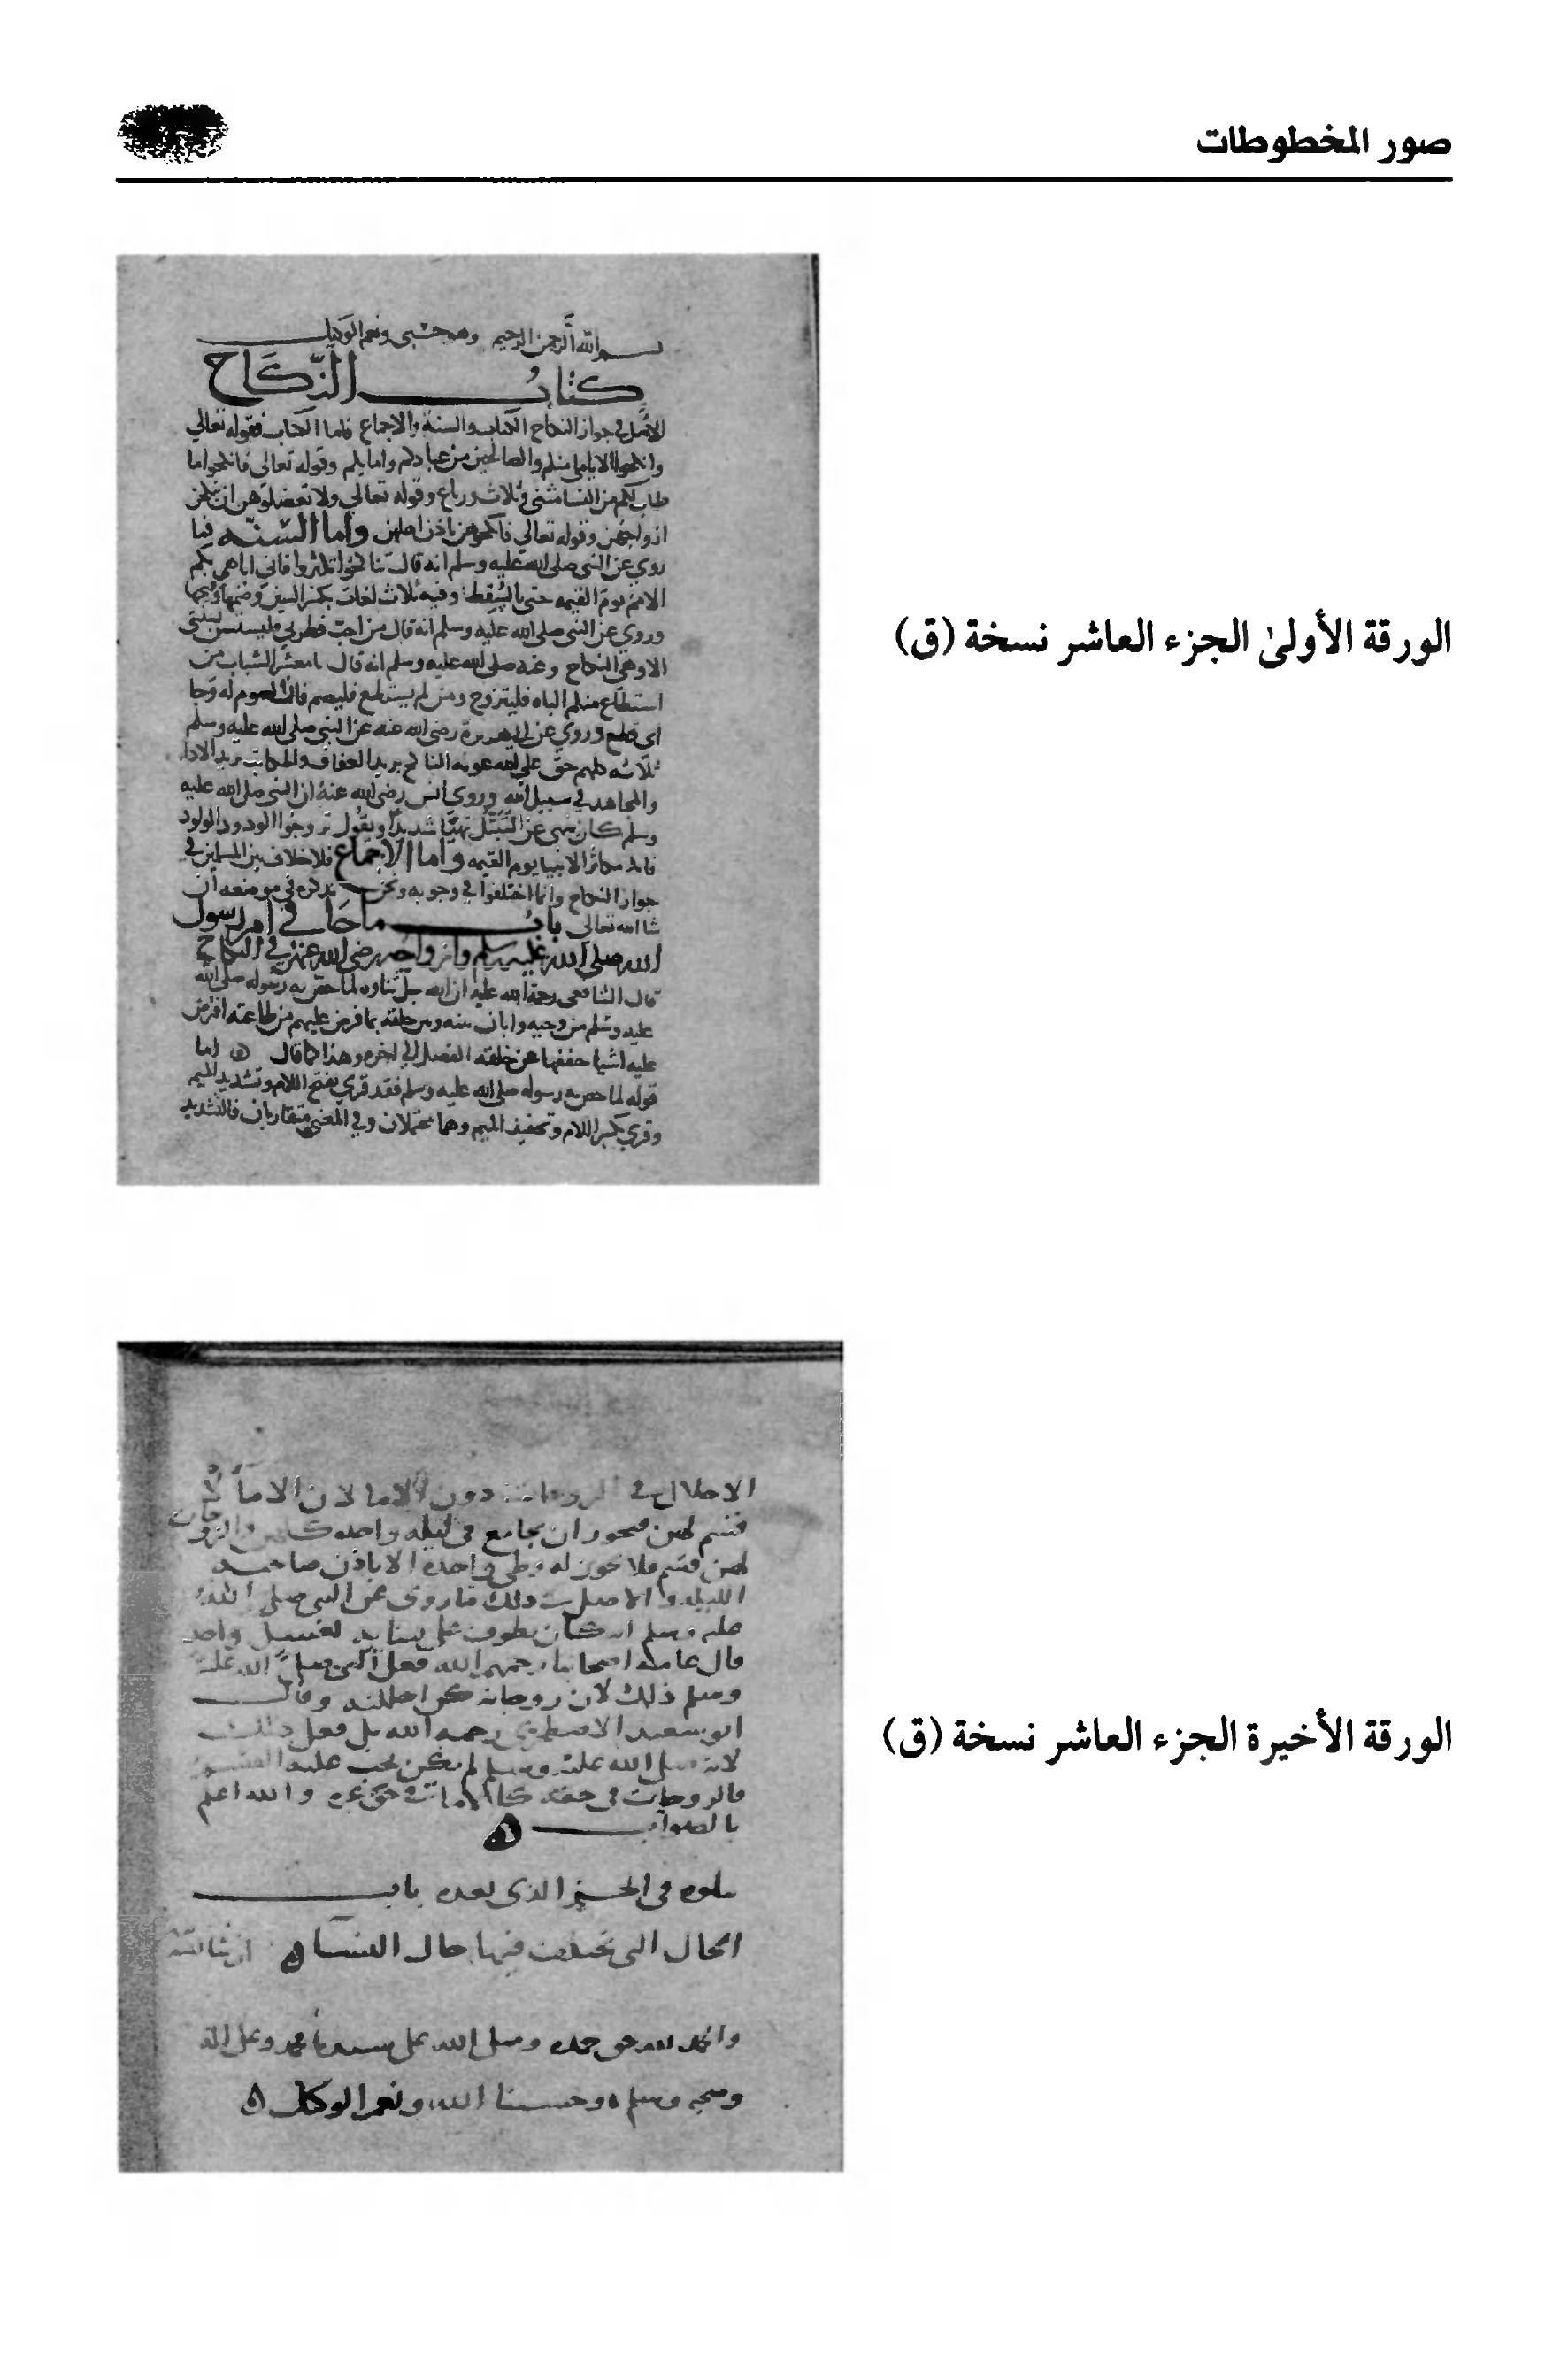 صور المخطوطات
بسم الله الرحمن الرحيم وهو حسبي ونعم الوكيل
كتاب النِّكَاح
الاصل في جواز النكاح الكتاب والسنة والاجماع فاما الكتاب فقوله تعالي
وانكحوا الايامى منكم والصالحين من عبادكم وامايكم وقوله تعالى فانكحوا ما
طاب لكم من النسا مثنى وثلاث ورباع وقوله تعالي ولا تعضلوهن ان ينكحن
ازواجهن وقوله تعالي فانكحوهن باذن اهلهن واما السنه فما
روي عن النبي صلى الله عليه وسلم انه قال تناكحوا تكثروا فاني اباهي بكم
الامم يوم القيمه حتى بالسقط وفيه ثلاث لغات بكسر السين وضمها وفتحها
وروي عن النبي صلى الله عليه وسلم انه قال من احب فطرتي فليستسن بسنتي
الا وهي النكاح وعنه صلى الله عليه وسلم انه قال يا معشر الشباب من
استطاع منكم الباه فليتزوج ومن لم يستطع فليصم فان الصوم له وجا
اي قطع وروي عن ابي هريرة رضي الله عنه عن النبي صلى الله عليه وسلم
ثلاثه كلهم حق على الله عونه الناكح يريد العفاف والمكاتب يريد الادا
والمجاهد في سبيل الله وروى انس رضي الله عنه ان النبي صلى الله عليه
وسلم كان ينهى عن التبتل نهيا شديدا ويقول تزوجوا الودود الولود
فاني مكاثر الانبيا يوم القيمه واما الاجماع فلا خلاف بين المسلمين في
جواز النكاح وانما اختلفوا في وجوبه ونحن نذكره في موضعه ان
شا الله تعالى باب ما جا في امر رسول
الله صلى الله عليه وسلم وازواجه رضي الله عنهن في النكاح
قال الشافعي رحمة الله عليه ان الله جل ثناوه لما خص به رسوله صلى الله
عليه وسلم من وحيه وابان بينه وبين خلقه بما فرض عليهم من طاعته افترض
عليه اشيا خففها عن خلقه الفصل الي اخره وهذا كما قال اما
قوله لما خص به رسوله صلى الله عليه وسلم فقد قري بفتح اللام وتشديد الميم
وقري بكسر اللام وتخفيف الميم وهما محتملان وفي المعنى متقاربان فالتشديد
الورقة الأولىٰ الجزء العاشر نسخة (ق)
الاحلال في الزوجات دون الاما لان الاما لا
قسم لهن فيجوز ان يجامع في ليله واحده والزوجات
لهن قسم فلا يجوز له وطى واحده الا باذن صاحبه
الليله والاصل في ذلك ما روى عن النبي صلى الله
عليه وسلم انه كان يطوف على نسايه لغسل واحد
قال عامة اصحابنا رحمهم الله فعل النبي صلى الله عليه
وسلم ذلك لان زوجاته كن احللنه وقال
ابو سعيد الاصطخري رحمه الله بل فعل ذلك
لانه صلى الله عليه وسلم لم يكن يجب عليه القسم
فالزوجات في حقه كالاما في حق غيره والله اعلم
بالصواب
يتلوه في الجز الذي بعده باب
الحال التي يختلف فيها حال النسا ان شا الله
والحمد لله حق حمده وصلى الله على سيدنا محمد وعلى اله
وصحبه وسلم وحسبنا الله ونعم الوكيل
الورقة الأخيرة الجزء العاشر نسخة (ق)